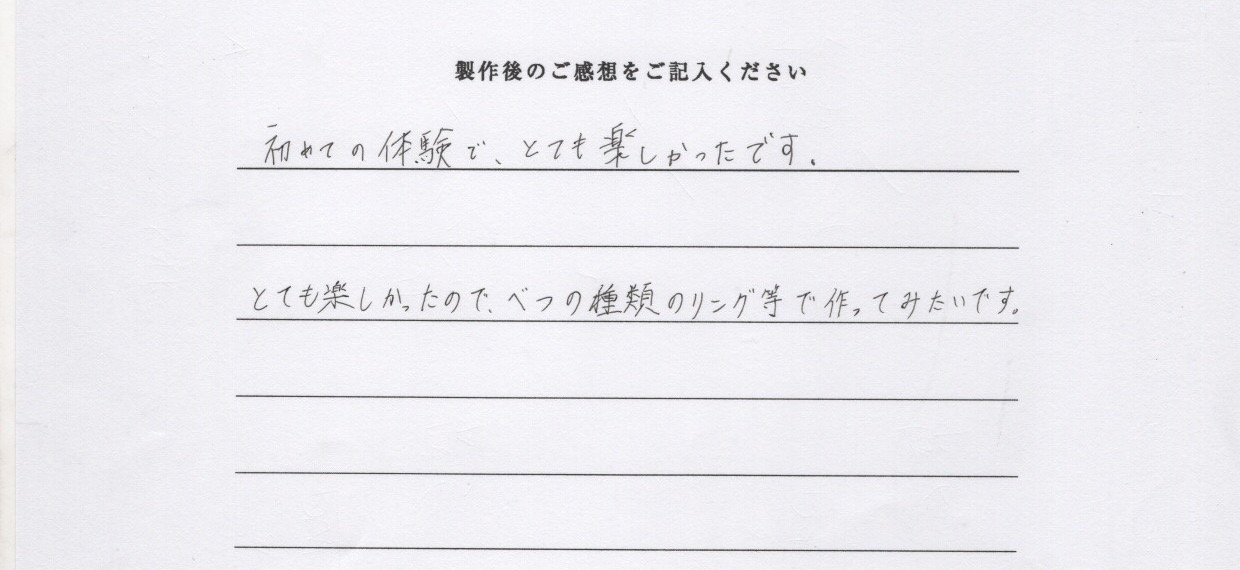 製作後のご感想をご記入ください
初めての体験で、とても楽しかったです.
とても楽しかったので、べつの種類のリング等で作ってみたいです。